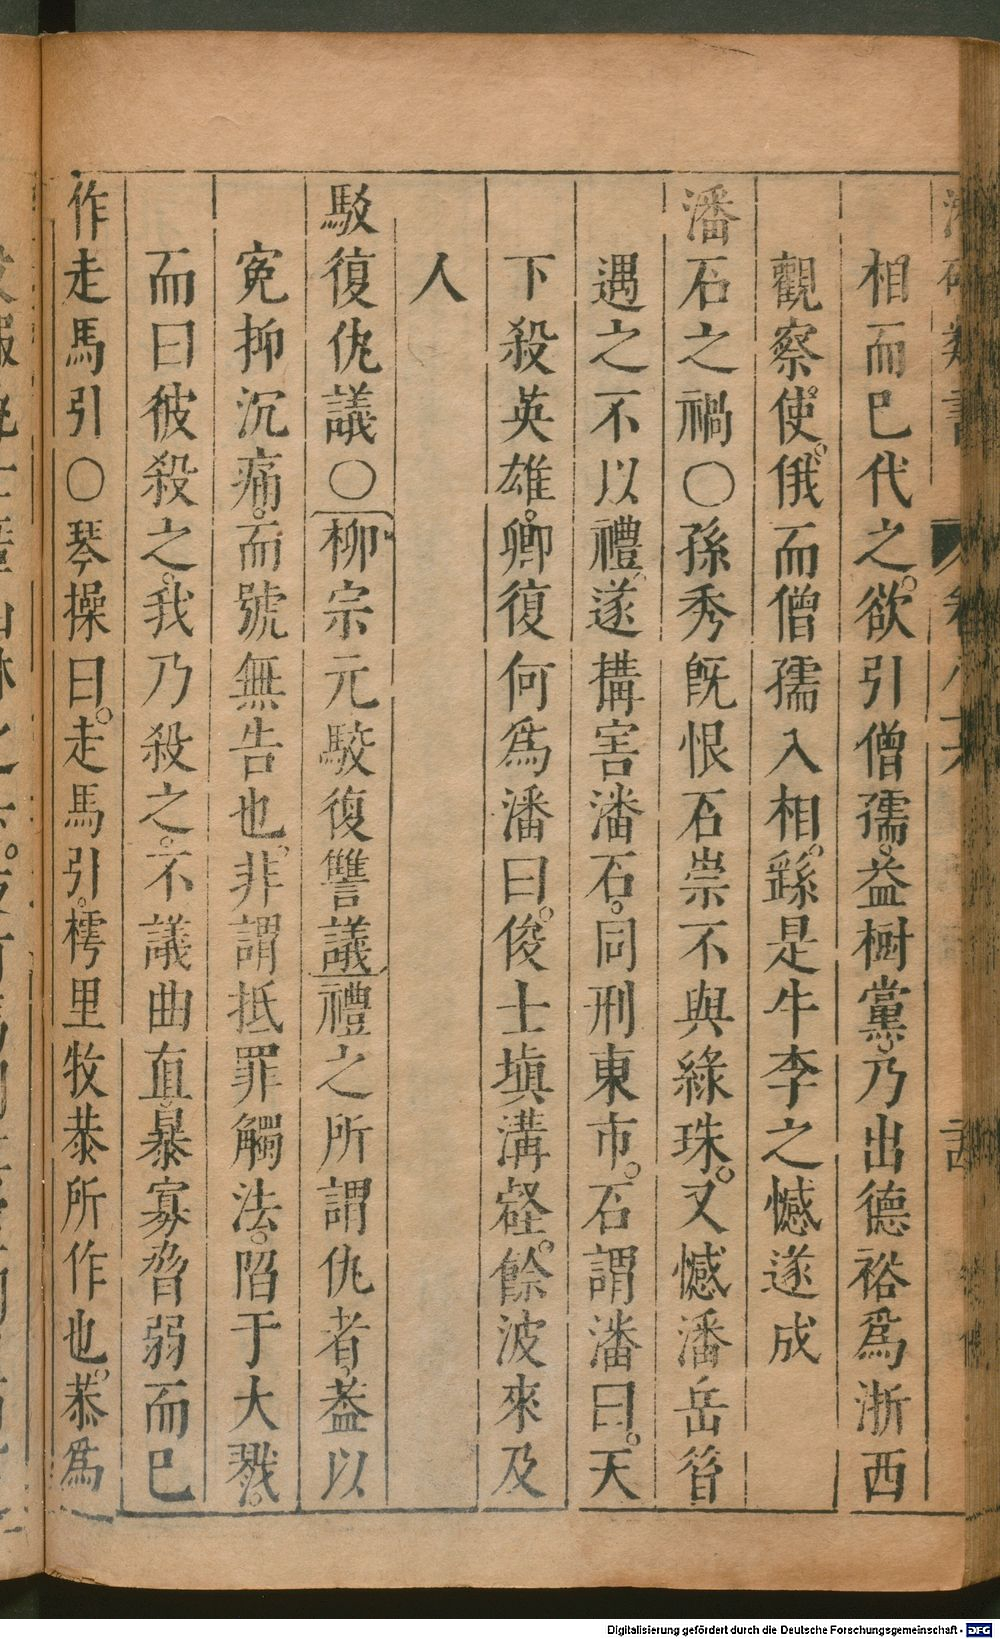 相而已代之欲引僧孺益樹黨乃出德裕爲浙西
觀察使俄而僧孺入相繇是牛李之憾遂成
潘石之禍○孫秀旣恨石崇不與綠珠又憾潘岳昝
遇之不以禮遂搆害潘石同刑東市石謂潘曰天
下殺英雄卿復何爲潘曰俊士塡溝壑餘波來及
人
駁復仇議○柳宗元駮復讐議禮之所謂仇者葢以
寃抑沉痛而號無告也非謂抵罪觸法陷于大戮
而曰彼殺之我乃殺之不議曲直暴寡脅弱而已
作走馬引○琴操曰走馬引樗里牧恭所作也恭爲
Digitalisierung gefördert durch die Deutsche Forschungsgemeinschaft - DFG